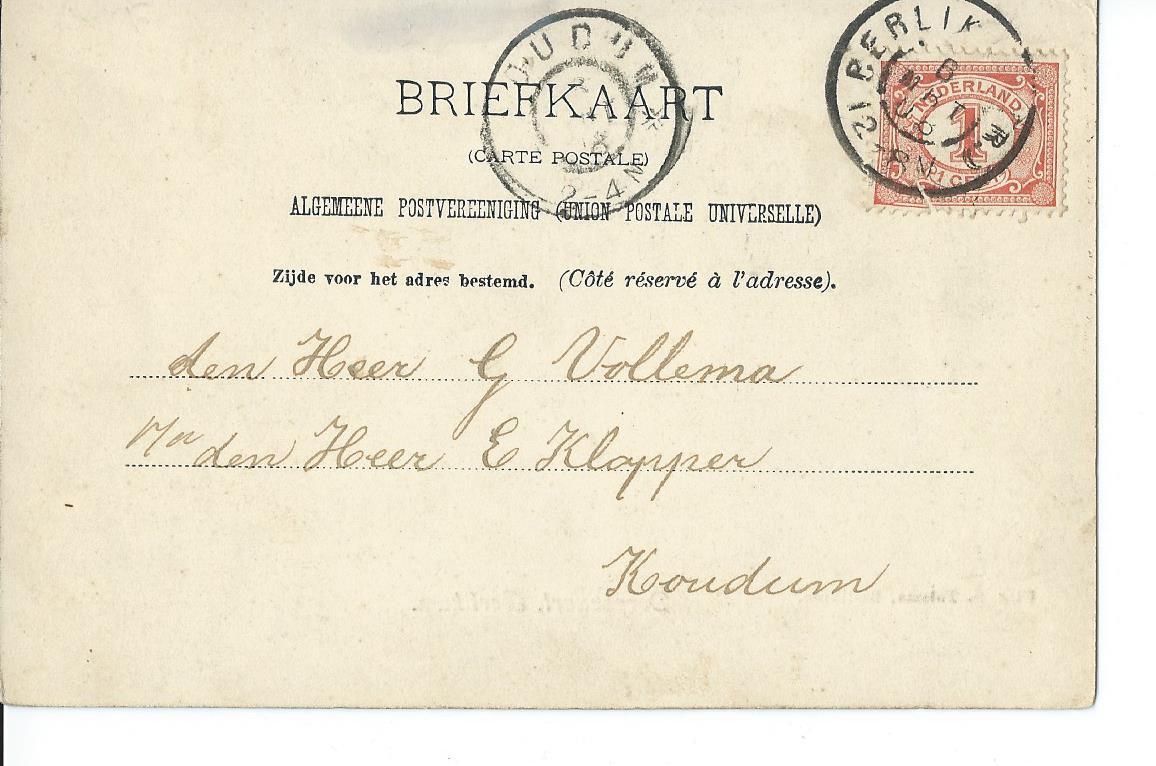 BRIEFKAART
(CARTE POSTALE)
ALGEMEENE POSTVEREENIGING (UNION POSTALE UNIVERSELLE)
Zijde voor het adres bestemd. (Côté réservé à l'adresse).
den Heer G Vollema
p/a den Heer E Klapper
Koudum
BERLIK
NEDERLAND
1
2-4N